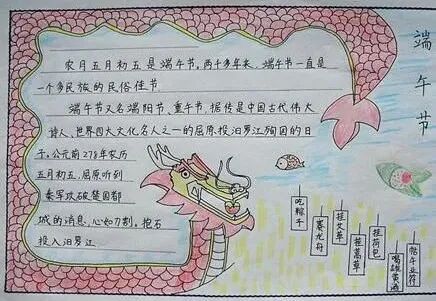 端午节
农月五月初五是端午节。两千多年来，端午节一直是
一个多民族的民俗佳节
端午节又名端阳节、重午节，据传是中国古代伟大
诗人、世界四大文化名人之一的屈原投汨罗江殉国的日
子。公元前278年农历
五月初五，屈原听到
秦军攻破楚国都
城的消息，心如刀割。抱石
投入汨罗江
吃粽子
赛龙舟
挂艾草
挂菖草
挂荷包
喝雄黄酒
帖午业符